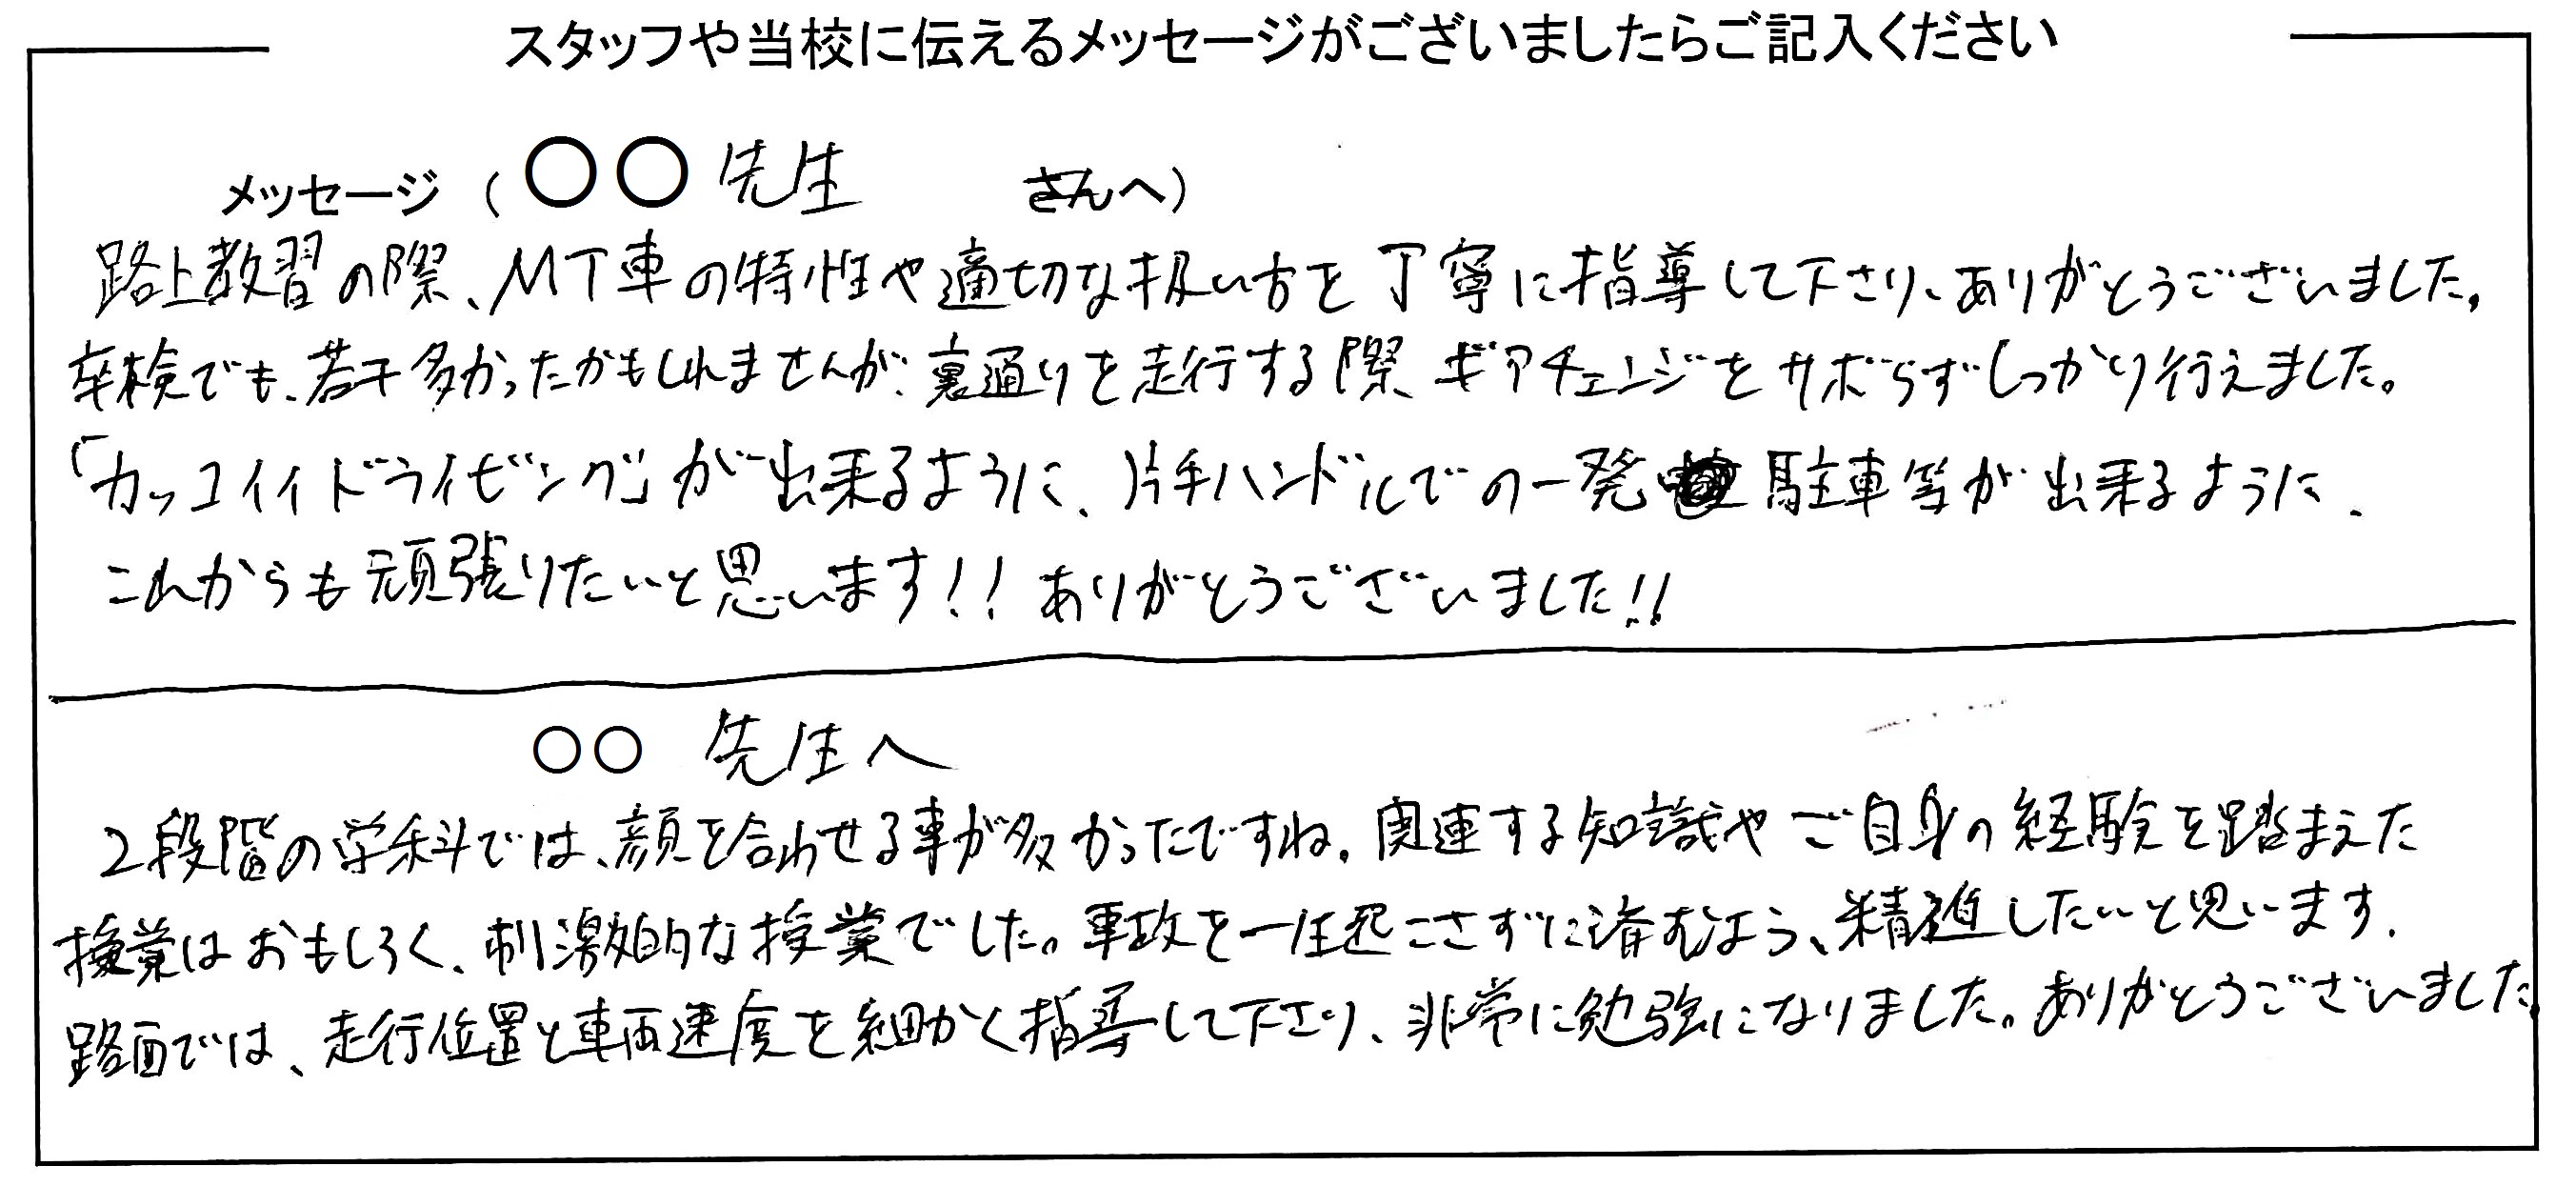 スタッフや当校に伝えるメッセージがございましたらご記入ください
メッセージ（○○先生 さんへ）
路上教習の際、MT車の特性や適切な扱い方を丁寧に指導して下さり、ありがとうございました。
卒検でも、若干多かったかもしれませんが、裏通りを走行する際、ギアチェンジをサボらずしっかり行えました。
「カッコイイドライビング」が出来るように、片手ハンドルでの一発駐車等が出来るように、
これからも頑張りたいと思います!! ありがとうございました!!
○○ 先生へ
2段階の学科では、顔を合わせる事が多かったですね。関連する知識やご自身の経験を踏まえた
授業はおもしろく、刺激的な授業でした。事故を一生起こさずに済むよう、精進したいと思います。
路面では、走行位置と車両速度を細かく指導して下さり、非常に勉強になりました。ありがとうございました。